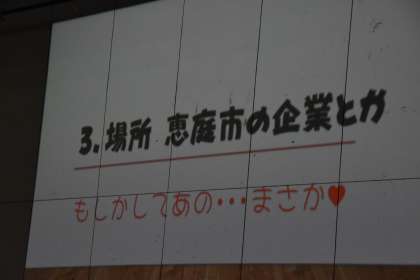 3. 場所 恵庭市の企業とか
もしかしてあの・・・まさか♥